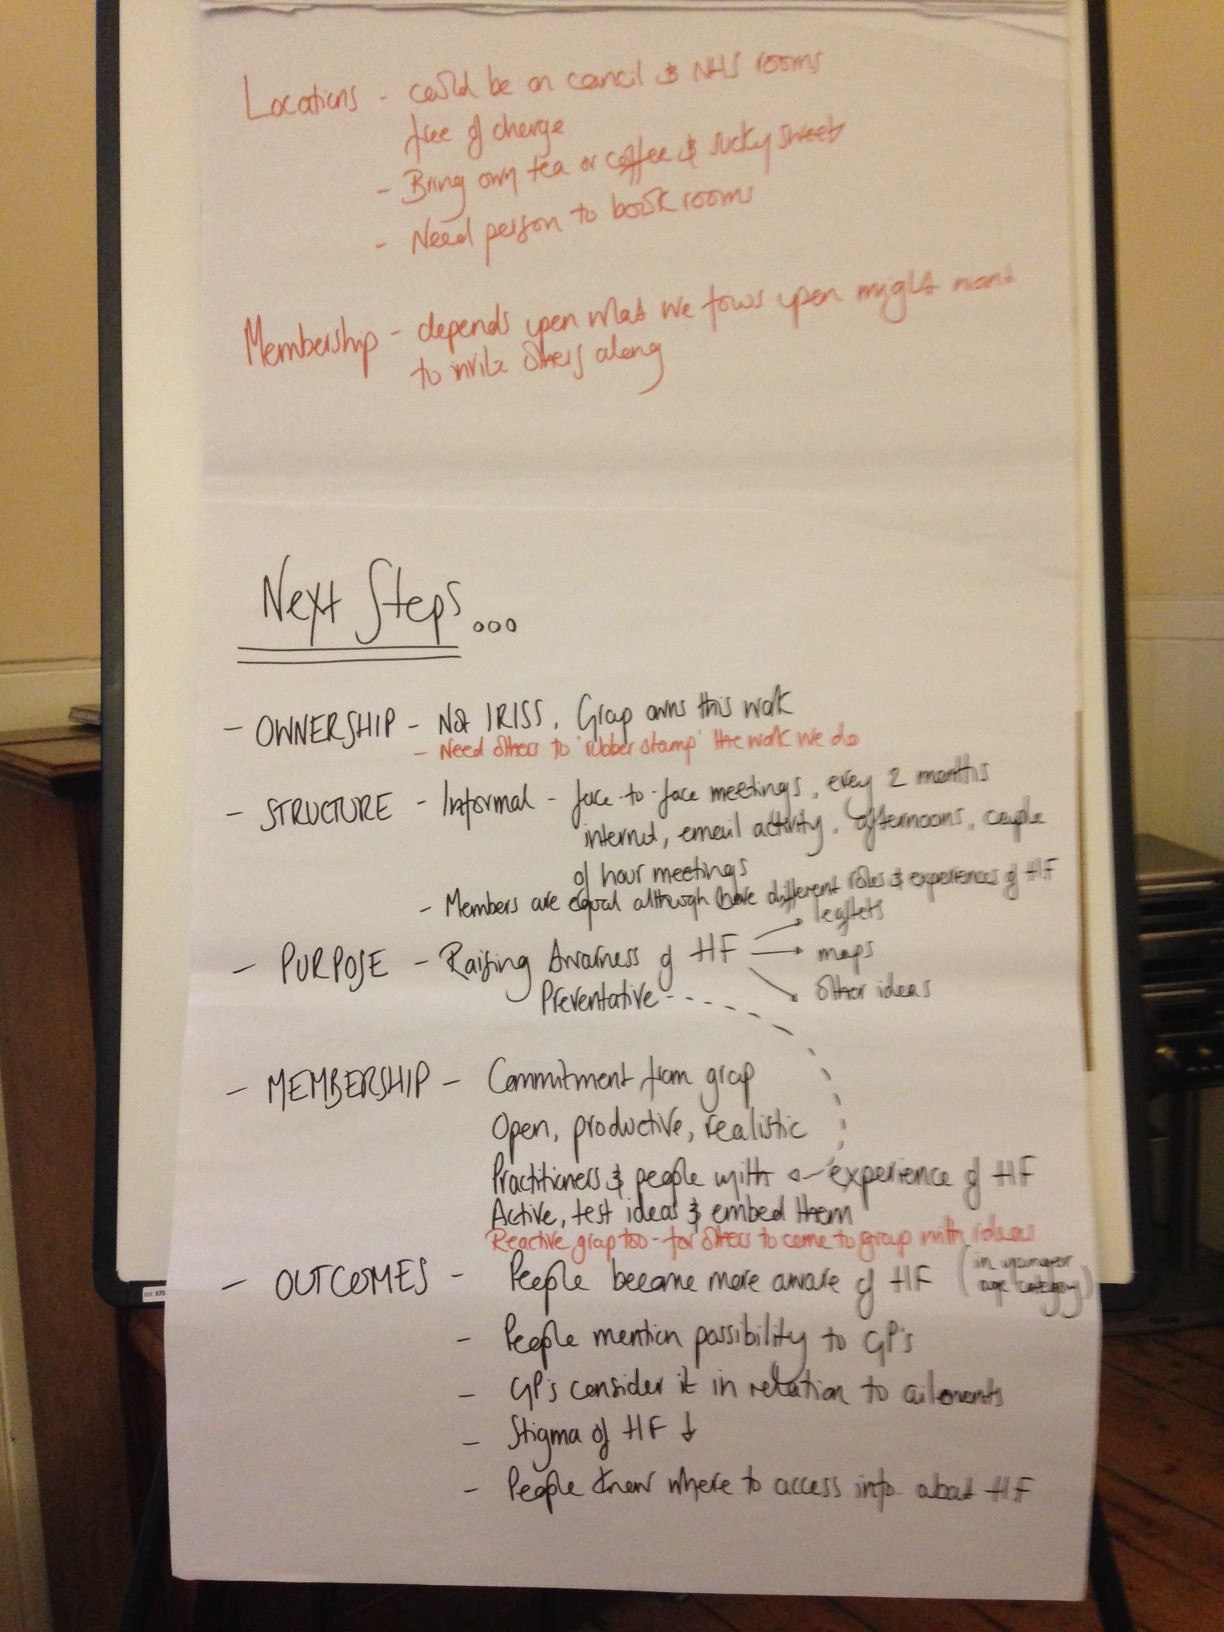 Locations - could be on council & NHS rooms
free of charge
- Bring own tea or coffee & sucky sweets
- Need person to book rooms
Membership - depends upon what we focus upon might want
to invite others along
Next Steps...
- OWNERSHIP - Not IRISS, Group owns this work
- Need others to 'rubber stamp' the work we do
- STRUCTURE - Informal - face-to-face meetings, every 2 months
internet, email activity, afternoons, couple
of hour meetings
- Members are equal although have different roles & experiences of HF
leaflets
- PURPOSE - Raising Awarness of HF
maps
Preventative
other ideas
- MEMBERSHIP - Commitment from group
Open, productive, realistic
Practitioners & people with experience of HF
Active, test ideas & embed them
Reactive group too - for others to come to group with ideas
- OUTCOMES - People become more aware of HF (in younger
age category)
- People mention possibility to GP's
- GP's consider it in relation to ailments
- Stigma of HF ↓
- People know where to access info about HF